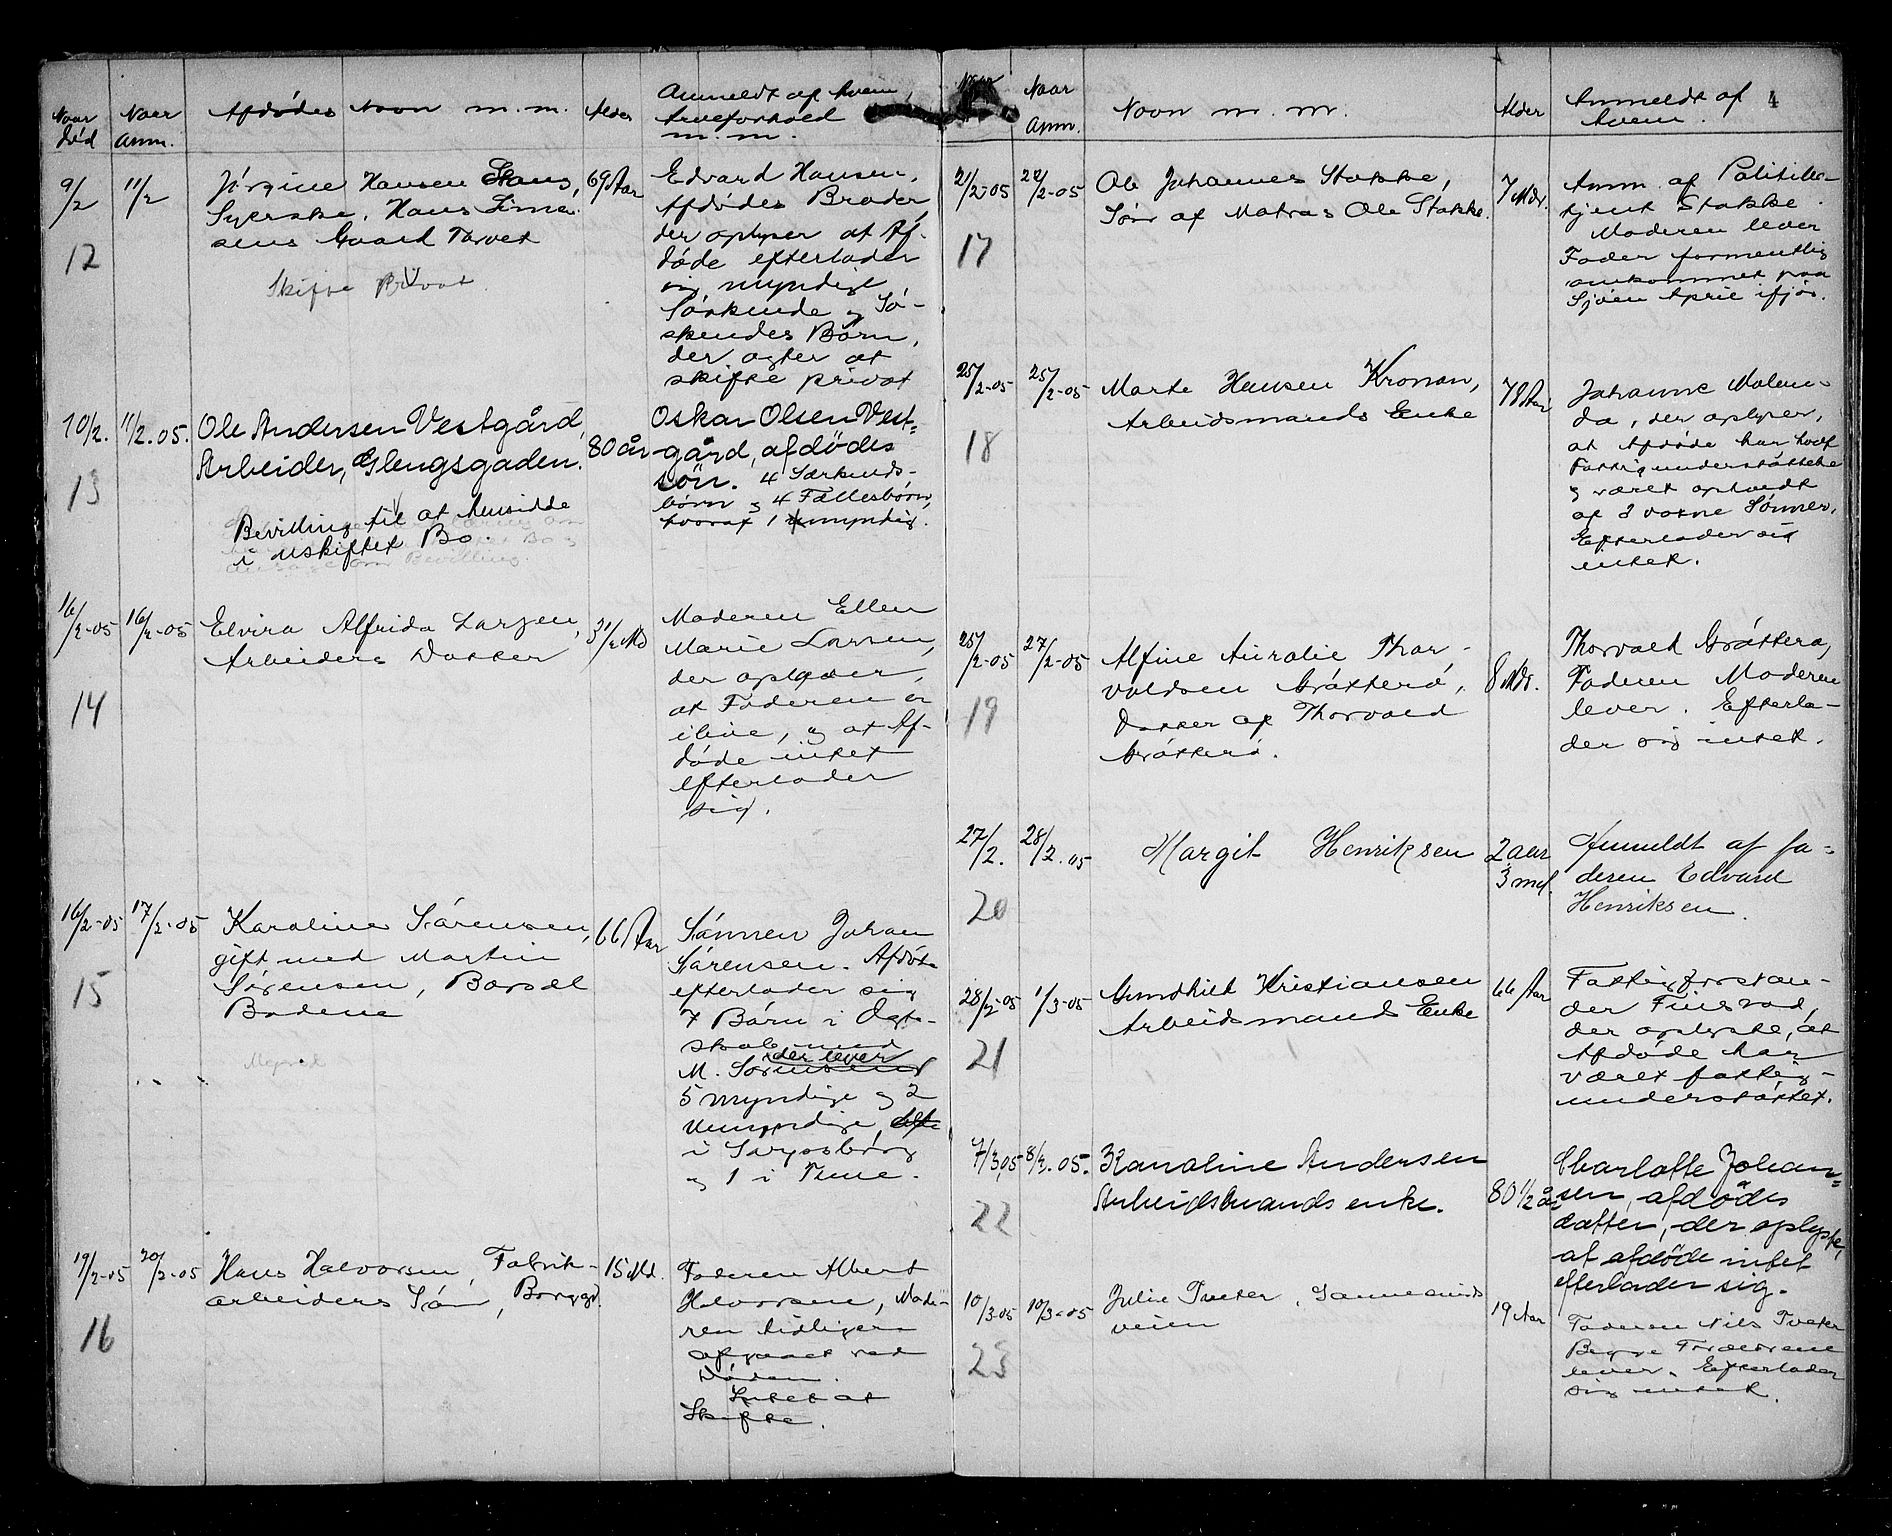 Naar Død
Naar Anm.
Afdødes Navn m. m.
Alder
Anmeldt af hvem,
Arveforhold
m. m.
9/2
11/2
12
Jørgine Hansen
Syerske. Hans Simen-
sens Gaard Torvet
Skifte Privat
69 Aar
Edvard Hansen,
Afdødes Broder,
der oplyser at Af-
døde efterlader
sig myndige
Søskende og Sø-
skendes Børn,
der agter at
skifte privat
10/2.
11/2.05.
13
Ole Andersen Vestgård,
Arbeider, Glengsgaden.
Bevilling til at hensidde
i uskiftet Bo.
80 år
Oskar Olsen Vest-
gård, afdödes
sön. 4 Særkuds-
børn og 4 Fællesbørn,
hvoraf 1 umyndig.
16/2-05
16/2-05
14
Elvira Alfrida Larsen,
Arbeiders Datter
3 1/2 Md
Moderen Ellen
Marie Larsen,
der oplyser,
at Faderen er
ilive, og at Af-
døde intet
efterlader
sig.
16/2-05
17/2-05
15
Karoline Sørensen,
gift med Martin
Sørensen,
Bodene
66 Aar
Sønnen Johan
Sørensen. Afdøde
efterlader sig
7 Børn i Ægte-
skab med
der lever
M. Sørensen
5 myndige og 2
umyndige,
i Sarpsborg
og 1 i Tune.
19/2-05
20/2-05
16
Hans Halvorsen, Fabrik-
arbeiders Søn, Borggd.
15 Md.
Faderen Albert
Halvorsen, Mode-
ren tidligere
afgaaet ved
Døden.
Intet at
Skifte.
Naar
Naar
Anm.
Navn m. m.
Alder
Anmeldt af
hvem.
4
21/2-05
22/2-05
17
Ole Johannes Stokke,
Søn af Matros Ole Stokke.
7 Mdr.
Anm. af Politibe-
tjent Stokke.
Moderen lever
Fader formentlig
omkommet paa
Sjøen April ifjor.
25/2-05
25/2-05
18
Marte Hansen
Arbeidsmands Enke
78 Aar
Johanne
da, der oplyser,
at Afdøde har havt
Fattigunderstøttelse
og været opholdt
af 2 voxne Sønner.
Efterlader sig
intet.
25/2-05
27/2-05
19
Alfine Auralie Thor-
valdsen Gråtterø,
Datter af Thorvald
Gråtterø.
8 Mdr.
Thorvald Gråtterø,
Faderen Moderen
lever. Efterla-
der sig intet.
27/2.
28/2.05
20
Margit Henriksen
2 aar
3 md.
Anmeldt af fa-
deren Edvard
Henriksen.
28/2-05
1/3-05
21
Gundhild Kristiansen
Arbeidsmands Enke
66 Aar
Fattigforstan-
der
der oplyste, at
Afdøde har
været fattig-
understøttet.
7/3.05
8/3.05.
22
Karoline Andersen
Arbeidsmands enke.
80 1/2 år
Charlotte Johan-
sen, afdödes
datter, der oplyste,
at afdöde intet
efterlader sig.
10/3-05
10/3-05
23
Julie Tveter,
veien
19 Aar
Faderen Nils Tveter
Begge Forældrene
lever. Efterlader
sig intet.